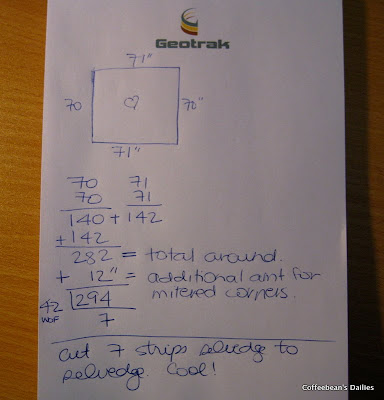 Geotrak
71"
70 70"
71"
70 71
70 71
140 + 142
+142
282 = total around.
+ 12" = additional amt for
42 294 mitered corners.
WOF 7
cut 7 strips selvedge to
selvedge. Cool!
Coffeebean's Dailies